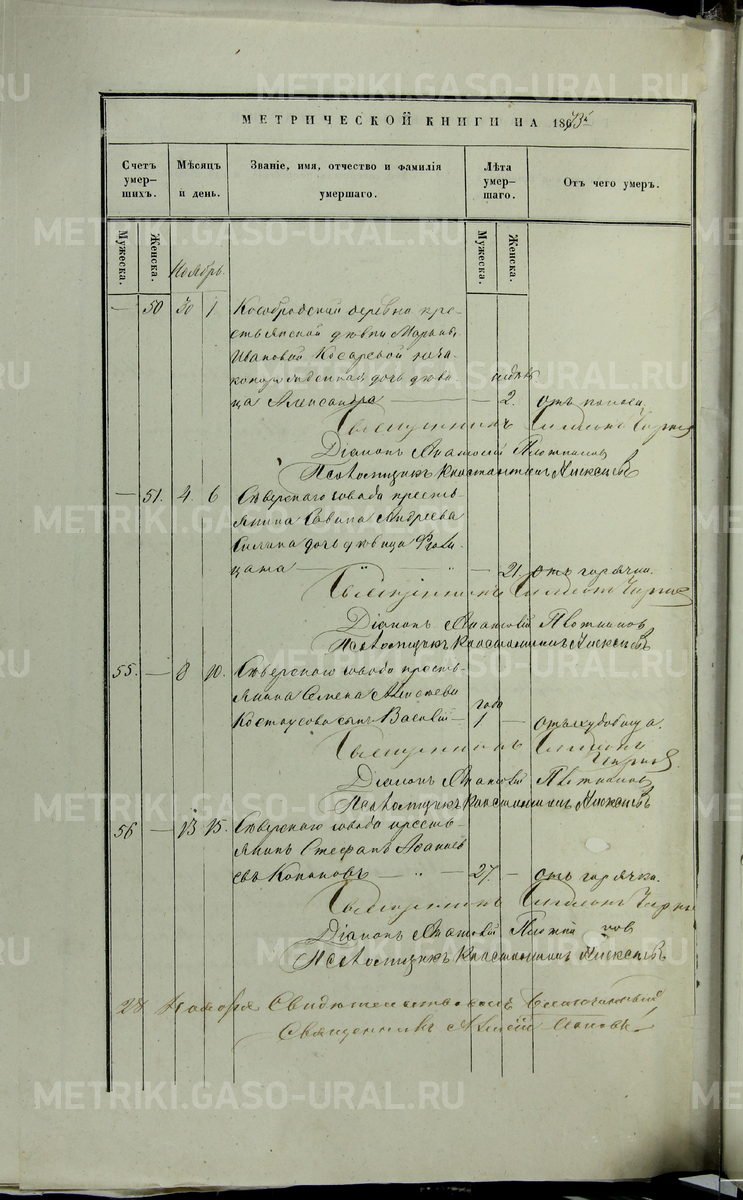 МЕТРИЧЕСКОЙ КНИГИ НА 1873й
Счетъ умер-шихъ. Мѣсяцъ и день. Званіе, имя, отчество и фамилія умершаго. Лѣта умер-шаго. Отъ чего умеръ.
Мужеска. Женска. Ноябрь. Мужеска. Женска.
— 50 30 1 Кособродской деревни кре-
стьянской дѣвки Марьи
Ивановой Косаревой неза-
коннорожденная дочь дѣви- недѣль
ца Александра — 2. отъ поноса.
Священникъ Симеонъ
Діаконъ Анатолій Плотников
Псаломщикъ Константинъ Алексѣевъ
— 51. 4 6 Сѣверскаго завода кресть-
янина Савина Андреева
Силина дочь дѣвица
— " — 21. отъ горячки.
Священникъ Симеонъ
Діаконъ Анатолій Плотников
Псаломщикъ Константинъ Алексѣевъ
55. — 8 10. Сѣверскаго завода кресть-
янина Семена Алексѣева года
Костоусова сынъ Василій — 1 — отъ худобища.
Священникъ Симеонъ
Діаконъ Анатолій Плотников
Псаломщикъ Константинъ Алексѣевъ
56 — 13 15. Сѣверскаго завода кресть-
янинъ Стефанъ
евъ — " — 27. — отъ горячки.
Священникъ Симеонъ
Діаконъ Анатолій Плотников
Псаломщикъ Константинъ Алексѣевъ
28 Ноября Свидѣтельствовалъ Благочинный
Священникъ Алексій Поповъ
METRIKI.GASO-URAL.RU